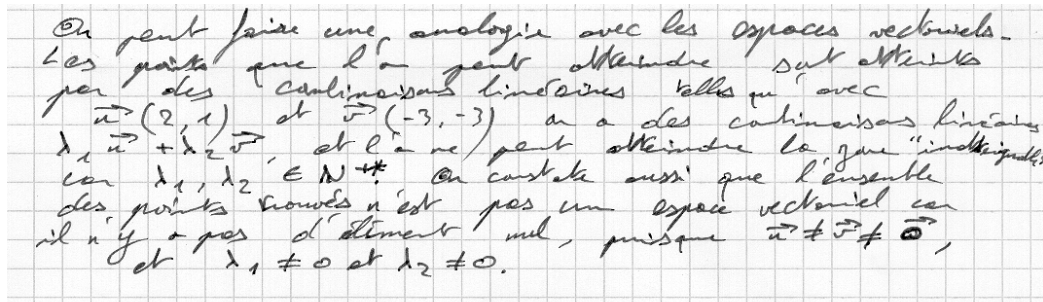 On peut faire une analogie avec les espaces vectoriels.
Les points que l'on peut atteindre sont atteints
par des combinaisons linéaires telles qu'avec
u⃗ (2, 1) et v⃗ (-3, -3) on a des combinaisons linéaires
λ₁ u⃗ + λ₂ v⃗, et l'on ne peut atteindre la zone "inatteignable"
car λ₁, λ₂ ∈ ℕ⁺*. On constate aussi que l'ensemble
des points trouvés n'est pas un espace vectoriel car
il n'y a pas d'élément nul, puisque u⃗ ≠ v⃗ ≠ 0⃗,
et λ₁ ≠ 0 et λ₂ ≠ 0.